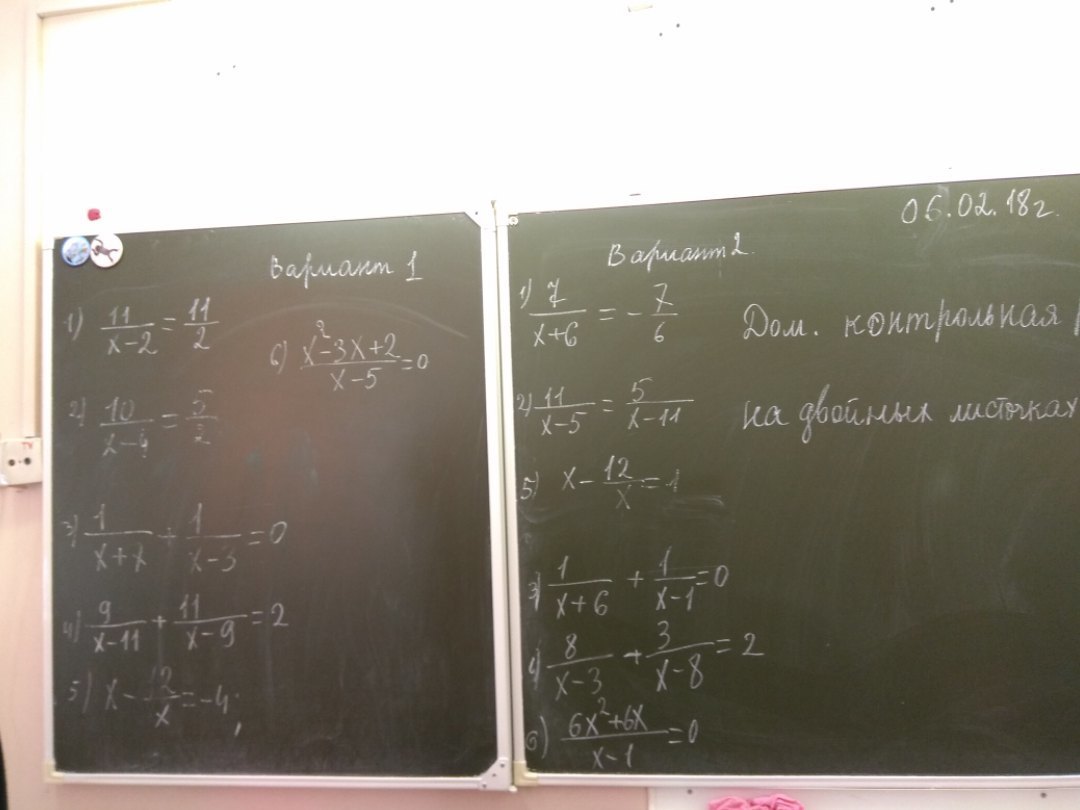 Вариант 1
1) 11/(x-2) = 11/2
6) (x²-3x+2)/(x-5) = 0
2) 10/(x-4) = 5/2
3) 1/(x+x) + 1/(x-3) = 0
4) 9/(x-11) + 11/(x-9) = 2
5) x - 2/x = -4;
06.02.18г.
Вариант 2.
1) 7/(x+6) = -7/6
Дом. контрольная
2) 11/(x-5) = 5/(x-11)
на двойных листочках
5) x - 12/x = 1
3) 1/(x+6) + 1/(x-1) = 0
4) 8/(x-3) + 3/(x-8) = 2
6) (6x²+6x)/(x-1) = 0